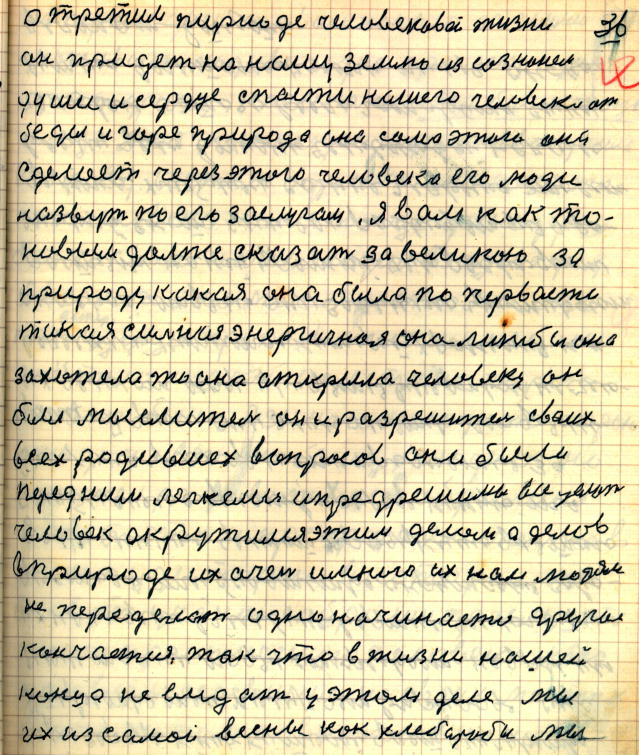 о третим пириоде человековай жизни 36
он придет на нашу землю из сознанем
души и сердце спасти нашего человека от
беды и горе природа она сама этого они
сделает через этого человека его люди
назвут по его заслугам. Я вам как то-
новым долже сказат за великою за
природу какая она была по первасти
такая силная энергичная она лиш бы она
захотела то она открила человеку он
был мыслител он и разрешител сваих
всех родившех вопросов они были
перед ним легкеми
человек окружился этим делом а делов
в природе их очен и много их нам людям
не переделат одно начинается другое
кончается, так что в жизни нашей
конца не видат у этом деле мы
их из самой весны как хлебаробы мы